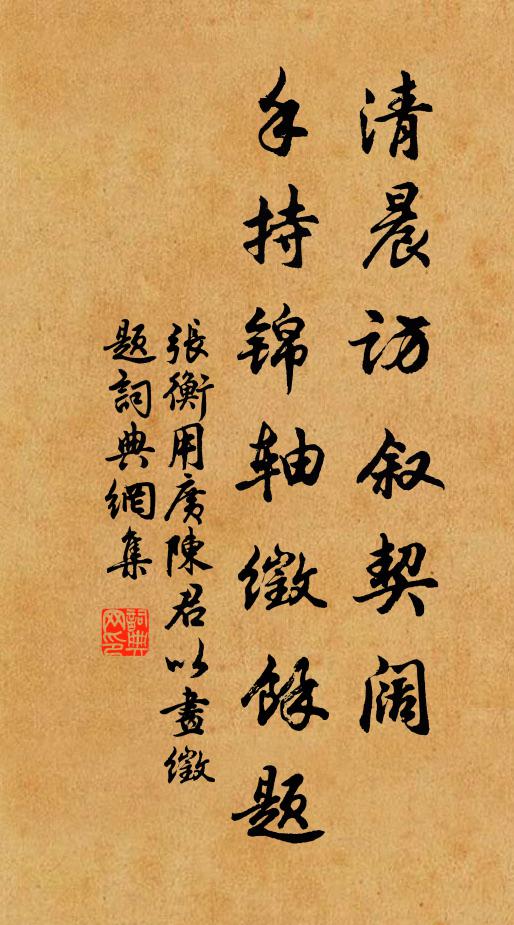 清晨访叙契阔
手持锦轴徵馀题
張衡用廣陳君以畫徵
题詞典網集
詞典网印